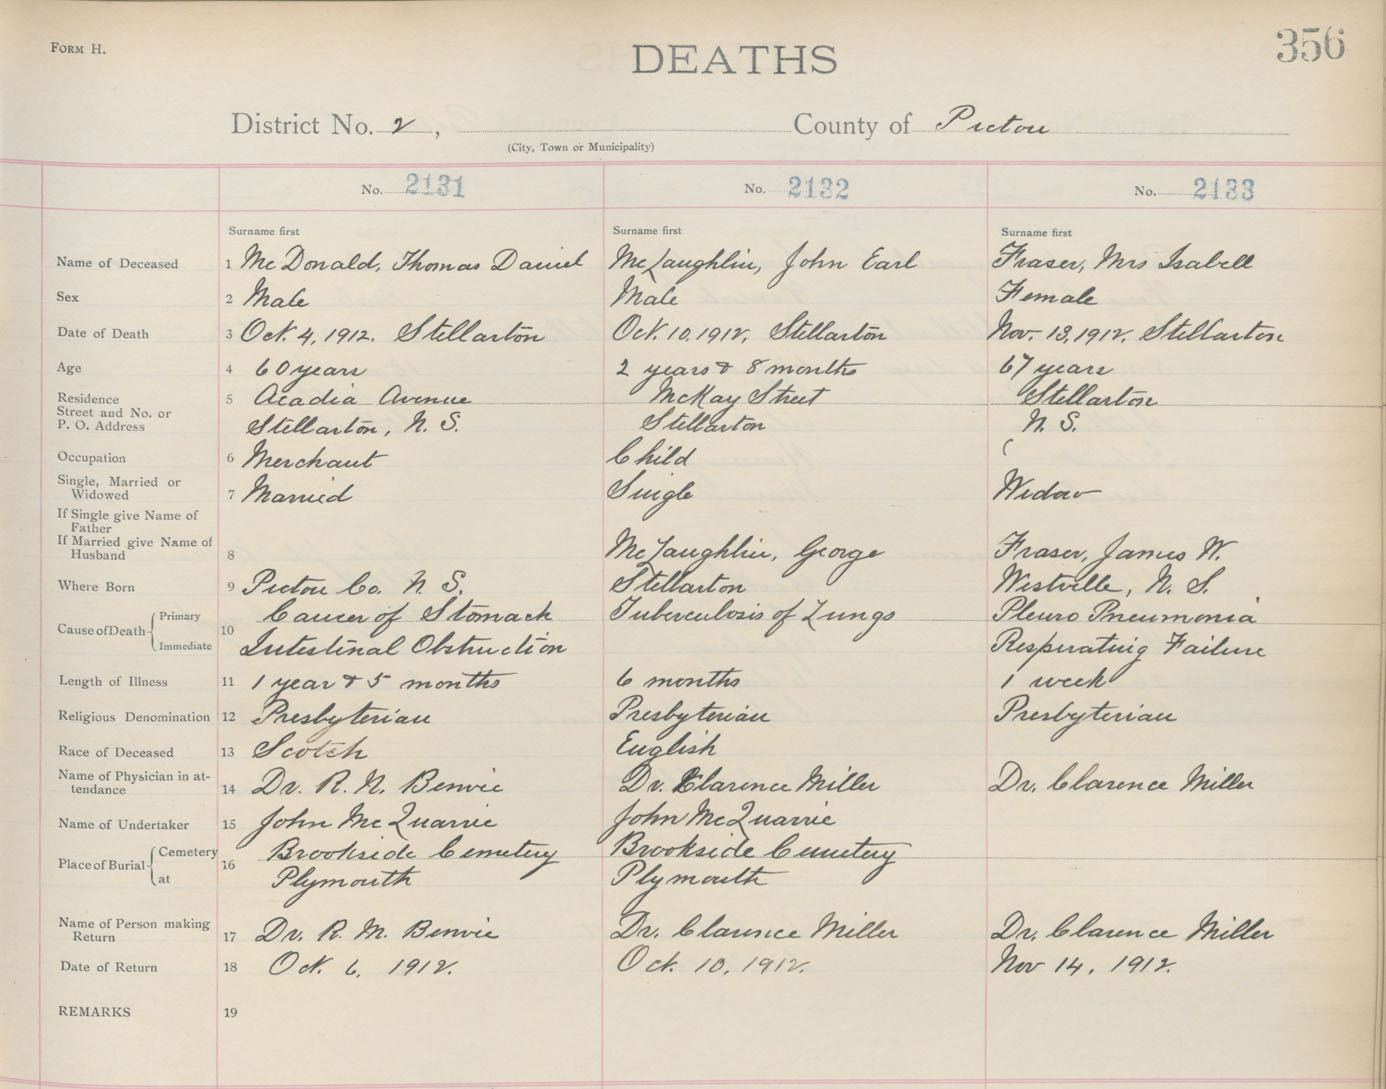 FORM H.
DEATHS
356
District No. 2, County of Pictou
(City, Town or Municipality)
No. 2131 No. 2132 No. 2133
Surname first Surname first Surname first
Name of Deceased 1 McDonald, Thomas Daniel McLaughlin, John Earl Fraser, Mrs Isabell
Sex 2 Male Male Female
Date of Death 3 Oct. 4, 1912. Stellarton Oct. 10, 1912, Stellarton Nov. 13, 1912, Stellarton
Age 4 60 years 2 years & 8 months 67 years
Residence 5 Acadia Avenue McKay Street Stellarton
Street and No. or
P. O. Address Stellarton, N. S. Stellarton N. S.
Occupation 6 Merchant Child
Single, Married or
Widowed 7 Married Single Widow
If Single give Name of
Father
If Married give Name of
Husband 8 McLaughlin, George Fraser, James W.
Where Born 9 Pictou Co. N. S. Stellarton Westville, N. S.
Cause of Death Primary 10 Cancer of Stomack Tuberculosis of Lungs Pleuro Pneumonia
Immediate Intestinal Obstruction Respirating Failure
Length of Illness 11 1 year & 5 months 6 months 1 week
Religious Denomination 12 Presbyterian Presbyterian Presbyterian
Race of Deceased 13 Scotch English
Name of Physician in at-
tendance 14 Dr. R. N. Benvie Dr. Clarence Miller Dr. Clarence Miller
Name of Undertaker 15 John McQuarrie John McQuarrie
Place of Burial Cemetery 16 Brookside Cemetery Brookside Cemetery
at Plymouth Plymouth
Name of Person making
Return 17 Dr. R. M. Benvie Dr. Clarence Miller Dr. Clarence Miller
Date of Return 18 Oct. 6, 1912. Oct. 10, 1912. Nov 14, 1912.
REMARKS 19